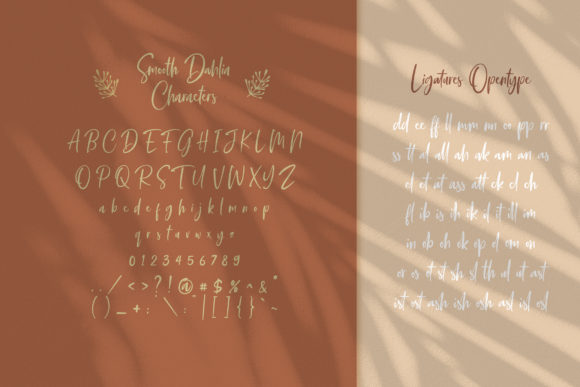 Smooth Dahlin
Characters
ABCDEFGHIJKLMN
OPQRSTUVWXYZ
abcdefghijklmnop
qrstuvwxyz
0123456789
../<>?!@#$%^&*
()_+:\:¨|[]{}`~
Ligatures Opentype
dd ee ff ll mm nn oo pp rr
ss tt al all ah ak am an as
d et at ass att ck cl ch
fl ib is ih ik il it ill im
in ob oh ok op ol om on
or os ot st sh sl th ul ut ast
ist ost ash ish osh asl isl osl